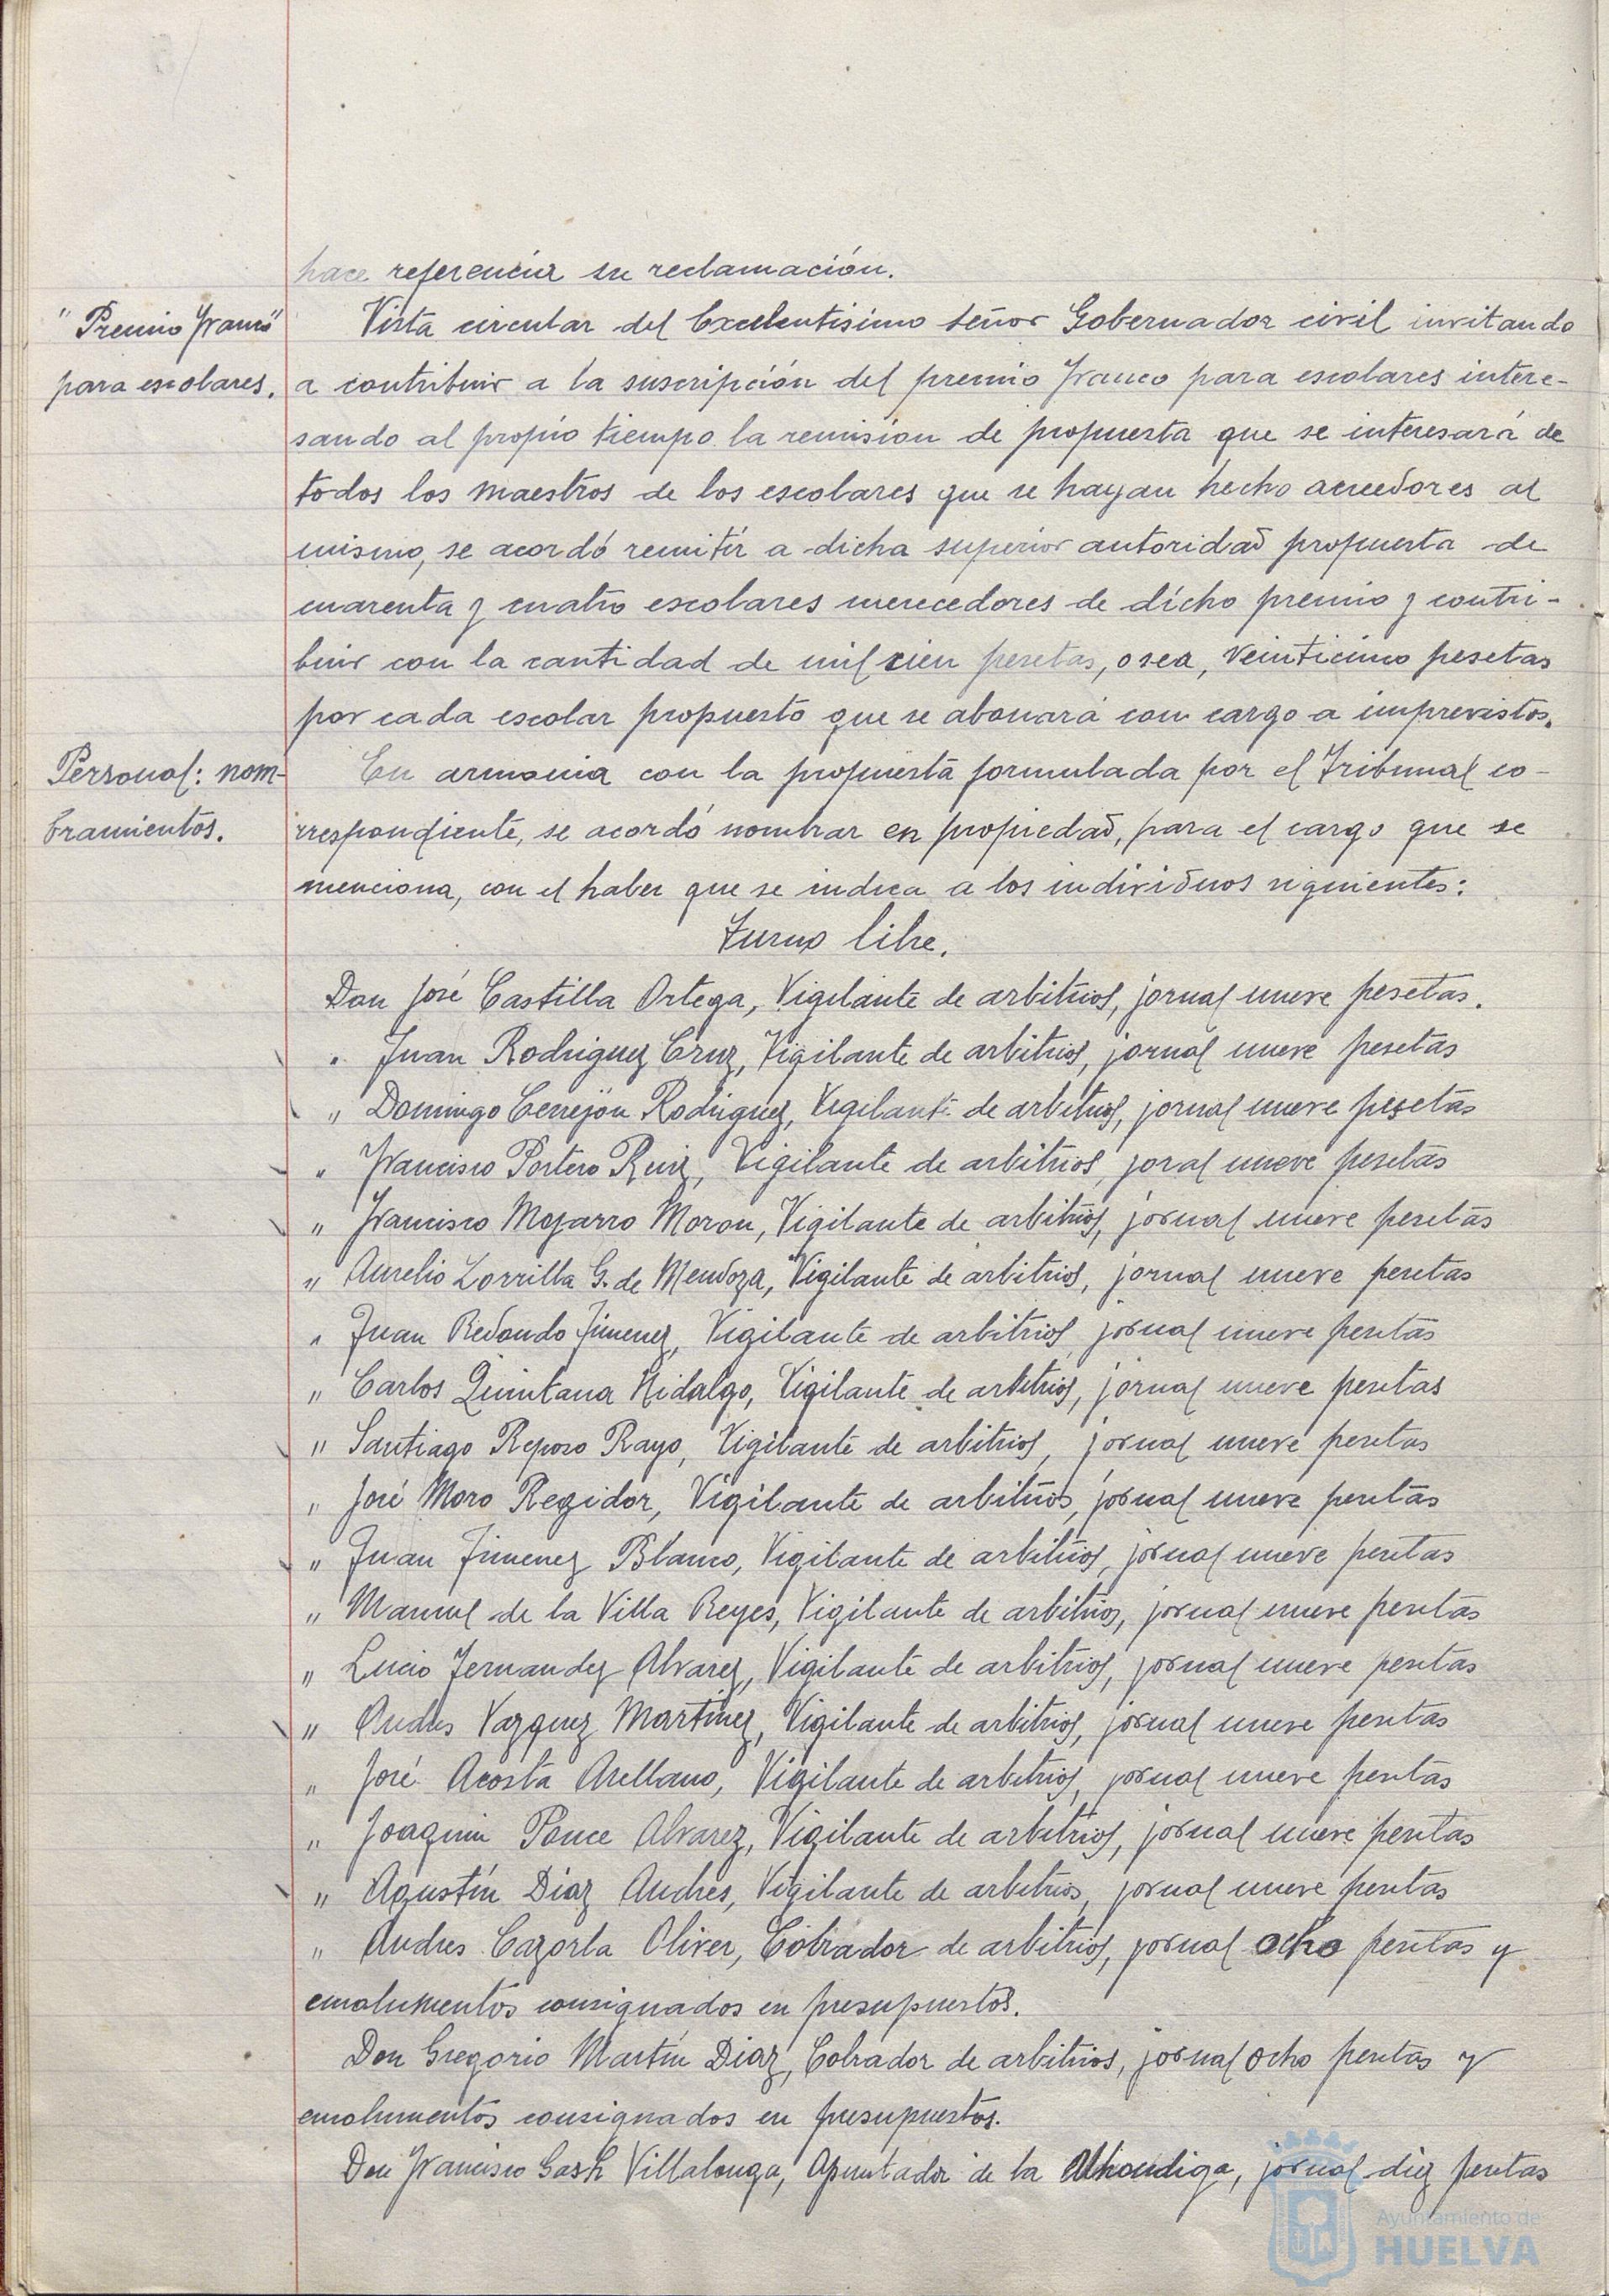 hace referencia su reclamación.
"Premio Franco"
para escolares.
Vista circular del Excelentisimo señor Gobernador civil invitando
a contribuir a la suscripción del premio Franco para escolares intere-
sando al propio tiempo la remision de propuesta que se interesará de
todos los maestros de los escolares que se hayan hecho acreedores al
mismo, se acordó remitir a dicha superior autoridad propuesta de
cuarenta y cuatro escolares merecedores de dicho premio y contri-
buir con la cantidad de mil cien pesetas, o sea, veinticinco pesetas
por cada escolar propuesto que se abonará con cargo a imprevistos.
Personal: nom-
bramientos.
En armonia con la propuesta formulada por el Tribunal co-
rrespondiente, se acordó nombrar en propiedad, para el cargo que se
menciona, con el haber que se indica a los individuos siguientes:
Turno libre.
Don José Castilla Ortega, Vigilante de arbitrios, jornal nueve pesetas.
" Juan Rodriguez Cruz, Vigilante de arbitrios, jornal nueve pesetas
" Domingo Cerrejón Rodriguez, Vigilante de arbitrios, jornal nueve pesetas
" Francisco Portero Ruiz, Vigilante de arbitrios, joral nueve pesetas
" Francisco Mojarro Moron, Vigilante de arbitrios, jornal nueve pesetas
" Aurelio Zorrilla G. de Mendoza, Vigilante de arbitrios, jornal nueve pesetas
" Juan Redondo Jimenez, Vigilante de arbitrios, jornal nueve pesetas
" Carlos Quintana Hidalgo, Vigilante de arbitrios, jornal nueve pesetas
" Santiago Reposo Rayo, Vigilante de arbitrios, jornal nueve pesetas
" José Moro Regidor, Vigilante de arbitrios, jornal nueve pesetas
" Juan Jimenez Blanco, Vigilante de arbitrios, jornal nueve pesetas
" Manuel de la Villa Reyes, Vigilante de arbitrios, jornal nueve pesetas
" Lucio Fernandez Alvarez, Vigilante de arbitrios, jornal nueve pesetas
" Andres Vazquez Martinez, Vigilante de arbitrios, jornal nueve pesetas
" José Acosta Arellano, Vigilante de arbitrios, jornal nueve pesetas
" Joaquin Ponce Alvarez, Vigilante de arbitrios, jornal nueve pesetas
" Agustín Diaz Andres, Vigilante de arbitrios, jornal nueve pesetas
" Andres Cazorla Oliver, Cobrador de arbitrios, jornal ocho pesetas y
emolumentos consignados en presupuestos.
Don Gregorio Martín Diaz, Cobrador de arbitrios, jornal ocho pesetas y
emolumentos consignados en presupuestos.
Don Francisco Villalonga, Apuntador de la Alhondiga, jornal diez pesetas
Ayuntamiento de
HUELVA